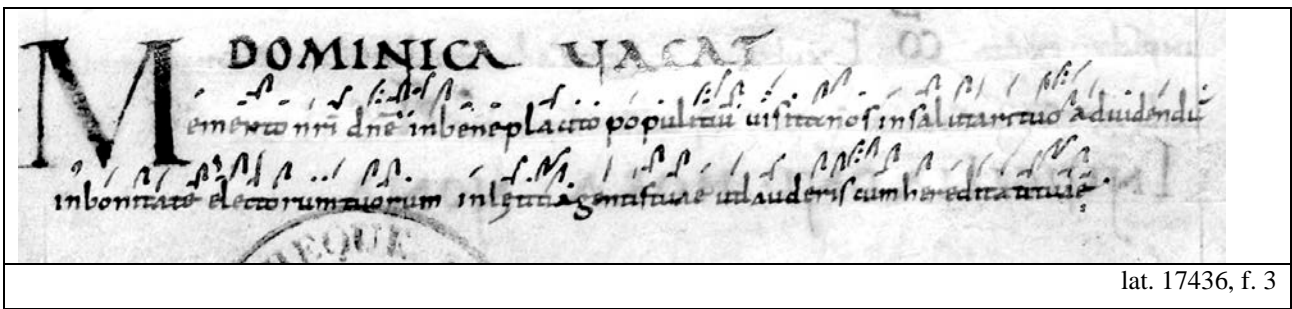 DOMINICA VACAT
Memento nrī dnē inbeneplacito populi tui uisita nos insalutari tuo aduidendū
inbonitate electorum tuorum inlętitia gentis tuae utlauderis cum hereditate tuae
EQUE
lat. 17436, f. 3